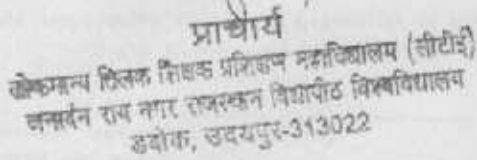 प्राचार्य
लोकमान्य तिलक शिक्षक प्रशिक्षण महाविद्यालय (सीटीई)
जनार्दन राय नागर राजस्थान विद्यापीठ विश्वविद्यालय
डबोक, उदयपुर-313022